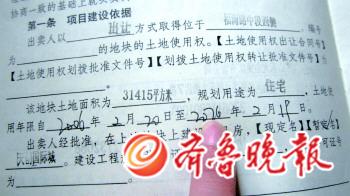 协商一致的基础上就买卖
第一条 项目建设依据
出卖人以 出让 方式取得位于 编号
为 的地块的土地使用权。【土地使用权出让合同号】
【土地使用权划拨批准文件号】【划拨土地使用权转让批准文件号】
为
该地块土地面积为 31415平方米，规划用途为 住宅，土地使
用年限自 年 2 月 20 日至 2076 年 2 月 19 日。
出卖人经批准，在上述地块上建设商品房，【现定名】【暂定名】
国际城。建设工程 可证号
为
齐鲁晚报